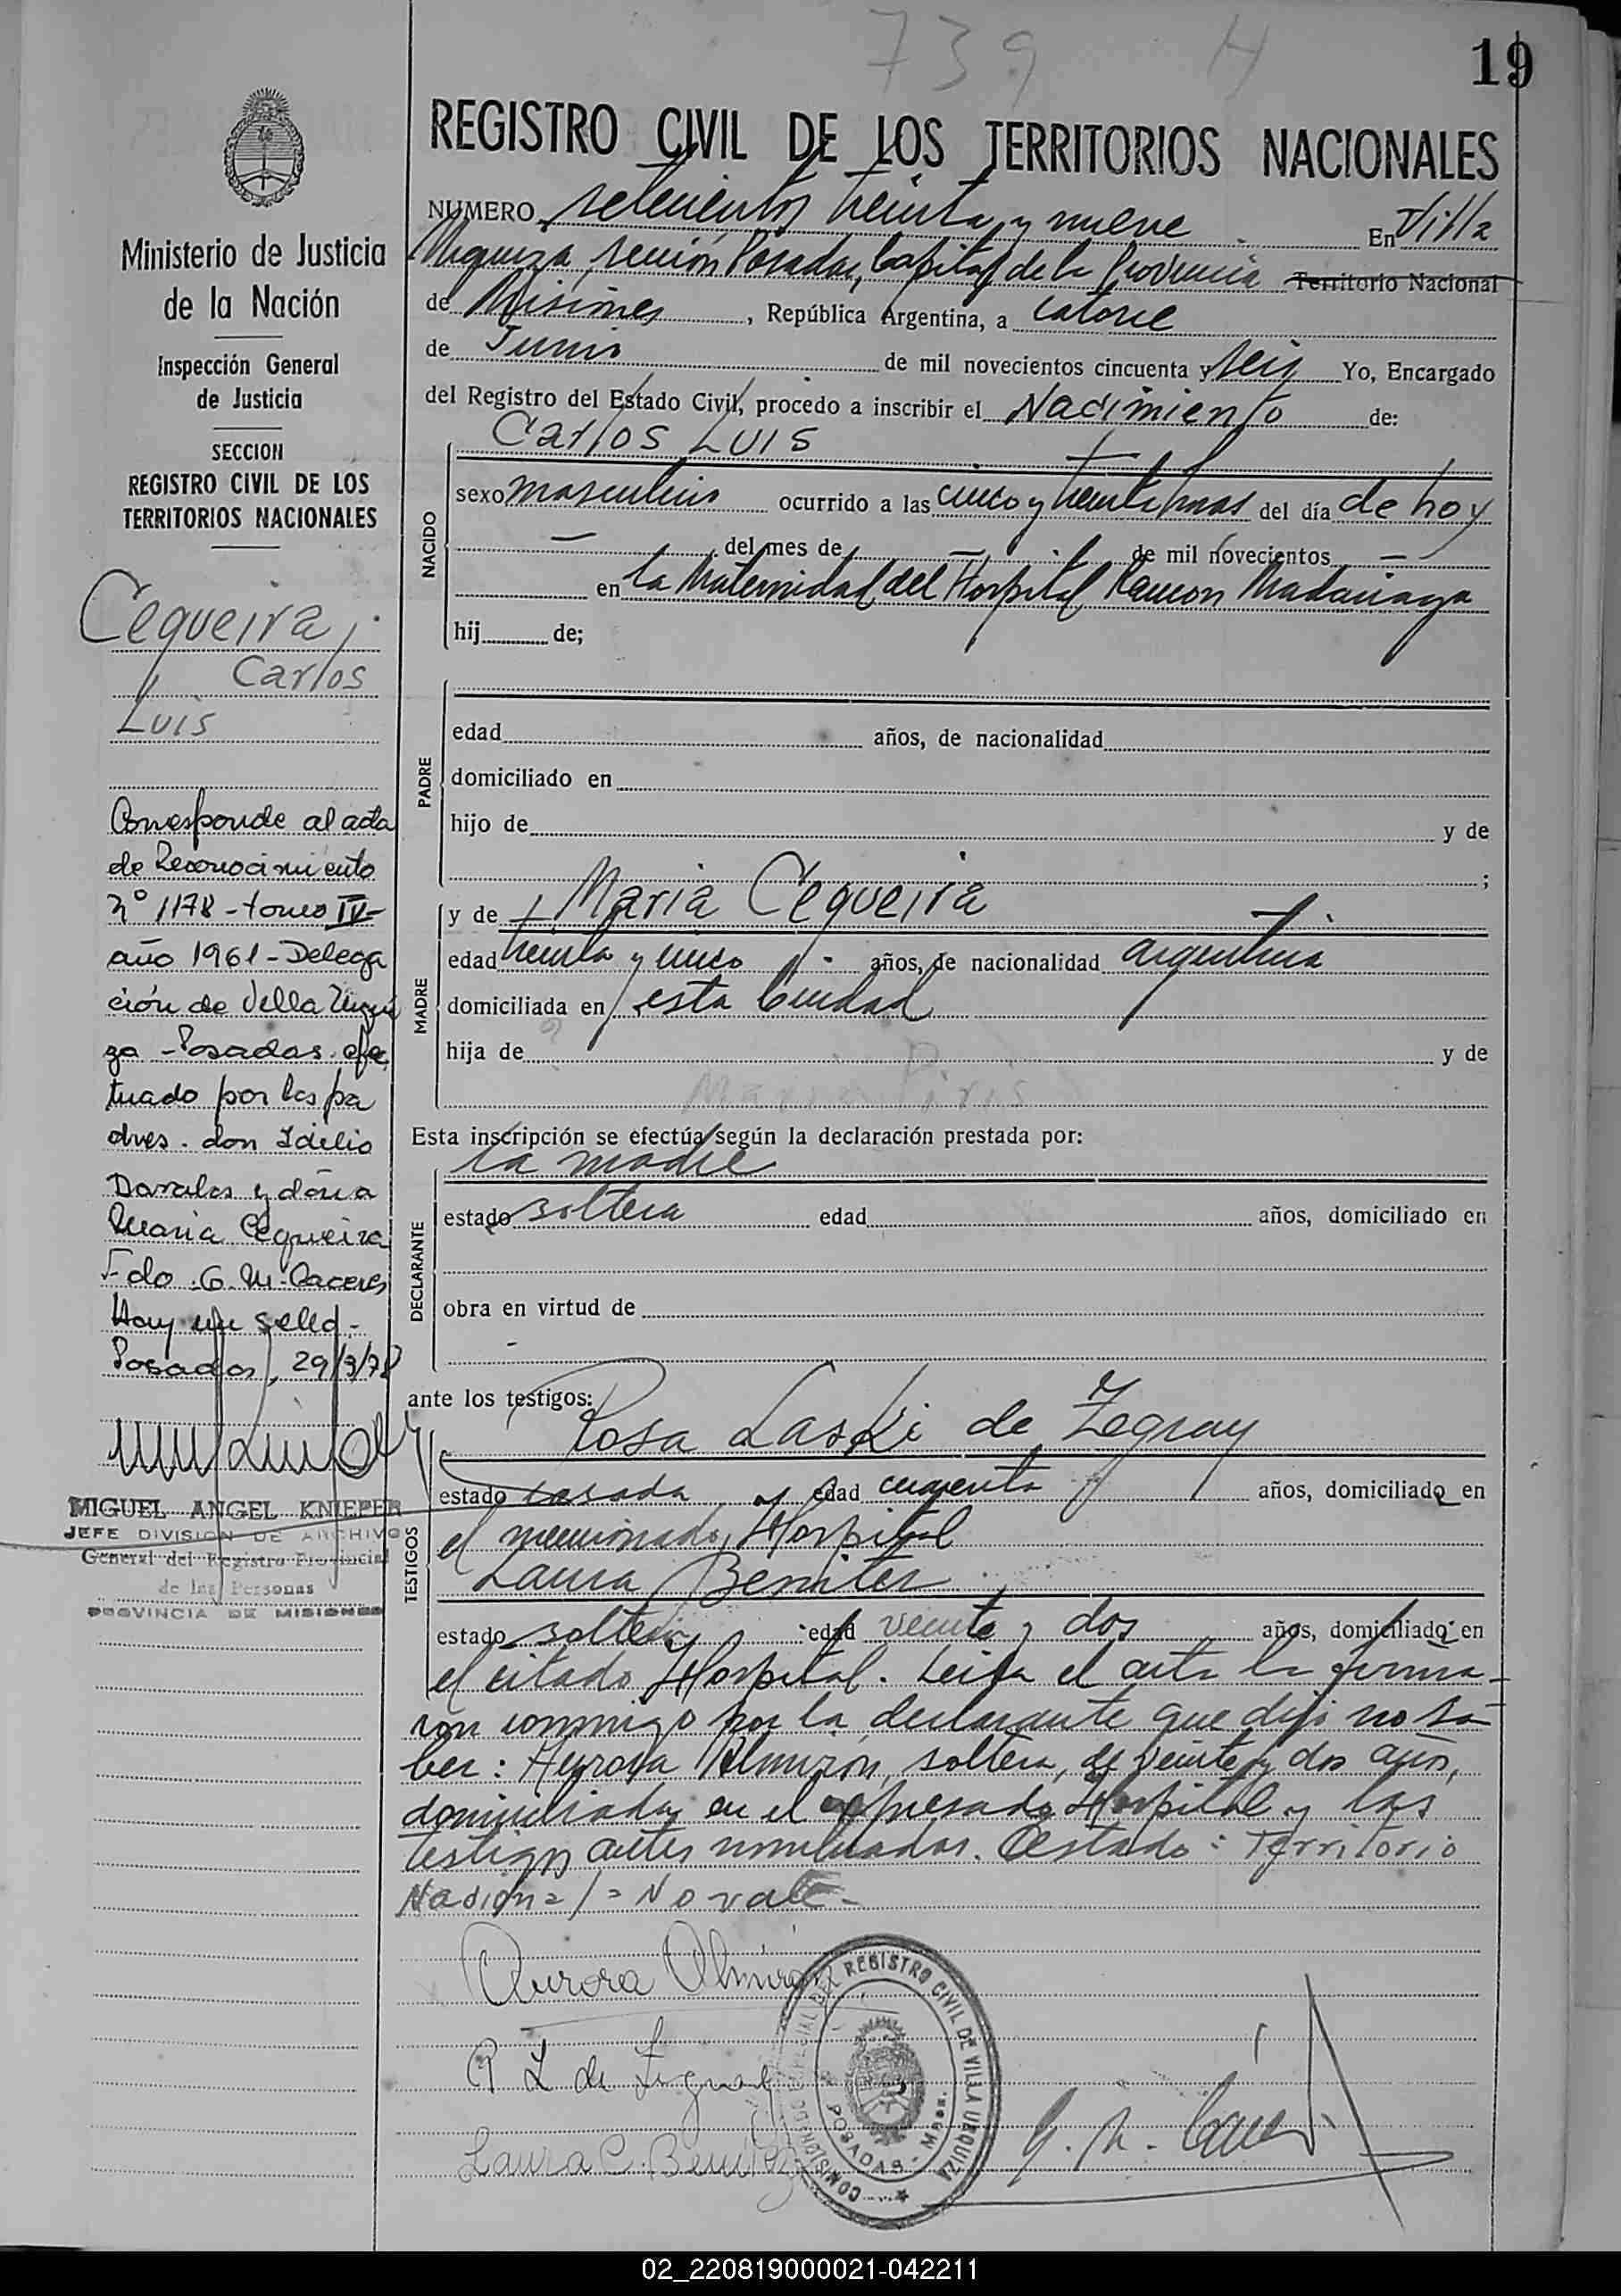 739 H
19
REGISTRO CIVIL DE LOS TERRITORIOS NACIONALES
NUMERO setecientos treinta y nueve En Villa
Urquiza, sección Posadas, Capital de la Provincia Territorio Nacional
de Misiones, República Argentina, a catorce
de Junio de mil novecientos cincuenta y seis Yo, Encargado
del Registro del Estado Civil, procedo a inscribir el Nacimiento de:
Ministerio de Justicia
de la Nación
Inspección General
de Justicia
SECCION
REGISTRO CIVIL DE LOS
TERRITORIOS NACIONALES
Cequeira,
Carlos
Luis
Corresponde al acta
de Reconocimiento
Nº 1178 - tomo IV -
año 1961 - Delega
ción de Villa Urqui
za - Posadas. efec
tuado por los pa
dres. don Idilio
Davalos y doña
Maria Cequeira
Fdo. G. M. Caceres
Hay un sello.-
Posadas, 29/3/78
MIGUEL ANGEL KNIEPER
JEFE DIVISION DE ARCHIVO
General del Registro Provincial
de las Personas
PROVINCIA DE MISIONES
NACIDO
Carlos Luis
sexo masculino ocurrido a las cinco y treinta horas del día de hoy
— del mes de — de mil novecientos —
en la Maternidad del Hospital Ramon Madariaga
hij de;
PADRE
edad años, de nacionalidad
domiciliado en
hijo de y de
;
MADRE
y de Maria Cequeira
edad treinta y cinco años, de nacionalidad argentina
domiciliada en esta Ciudad
hija de y de
Maria Piris
Esta inscripción se efectúa según la declaración prestada por:
DECLARANTE
la madre
estado soltera edad años, domiciliado en
obra en virtud de
ante los testigos:
TESTIGOS
Rosa Laski de Zegray
estado casada edad cuarenta años, domiciliado en
el mencionado Hospital
Laura Benitez
estado soltera edad veinte y dos años, domiciliado en
el citado Hospital. Leida el acta la firma-
ron conmigo por la declarante que dijo no sa-
ber: Aurora Almirón, soltera, de veinte y dos años,
domiciliada en el expresado Hospital y las
testigos antes nombradas. Testado: Territorio
Nacional = No vale -
Aurora Almirón
R L de Zegray
Laura C. Benitez
G. M.
REGISTRO CIVIL DE VILLA URQUIZA
POSADAS - Mnes.
02_220819000021-042211